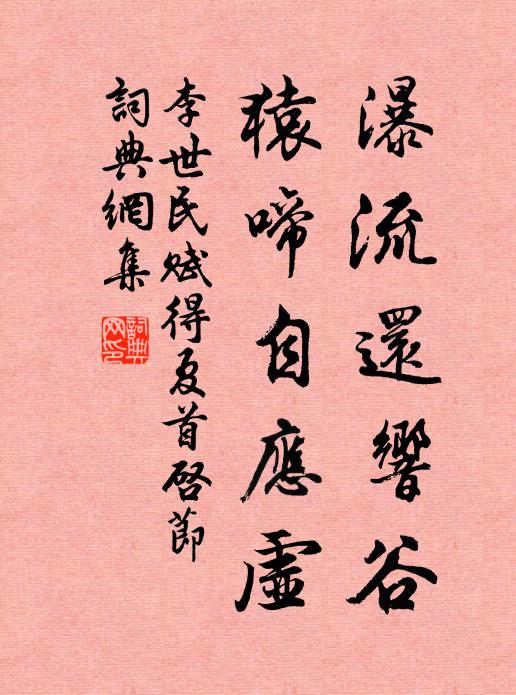 瀑流還響谷
猿啼自應虛
李世民賦得夏首啓節
詞典網集
詞典網印